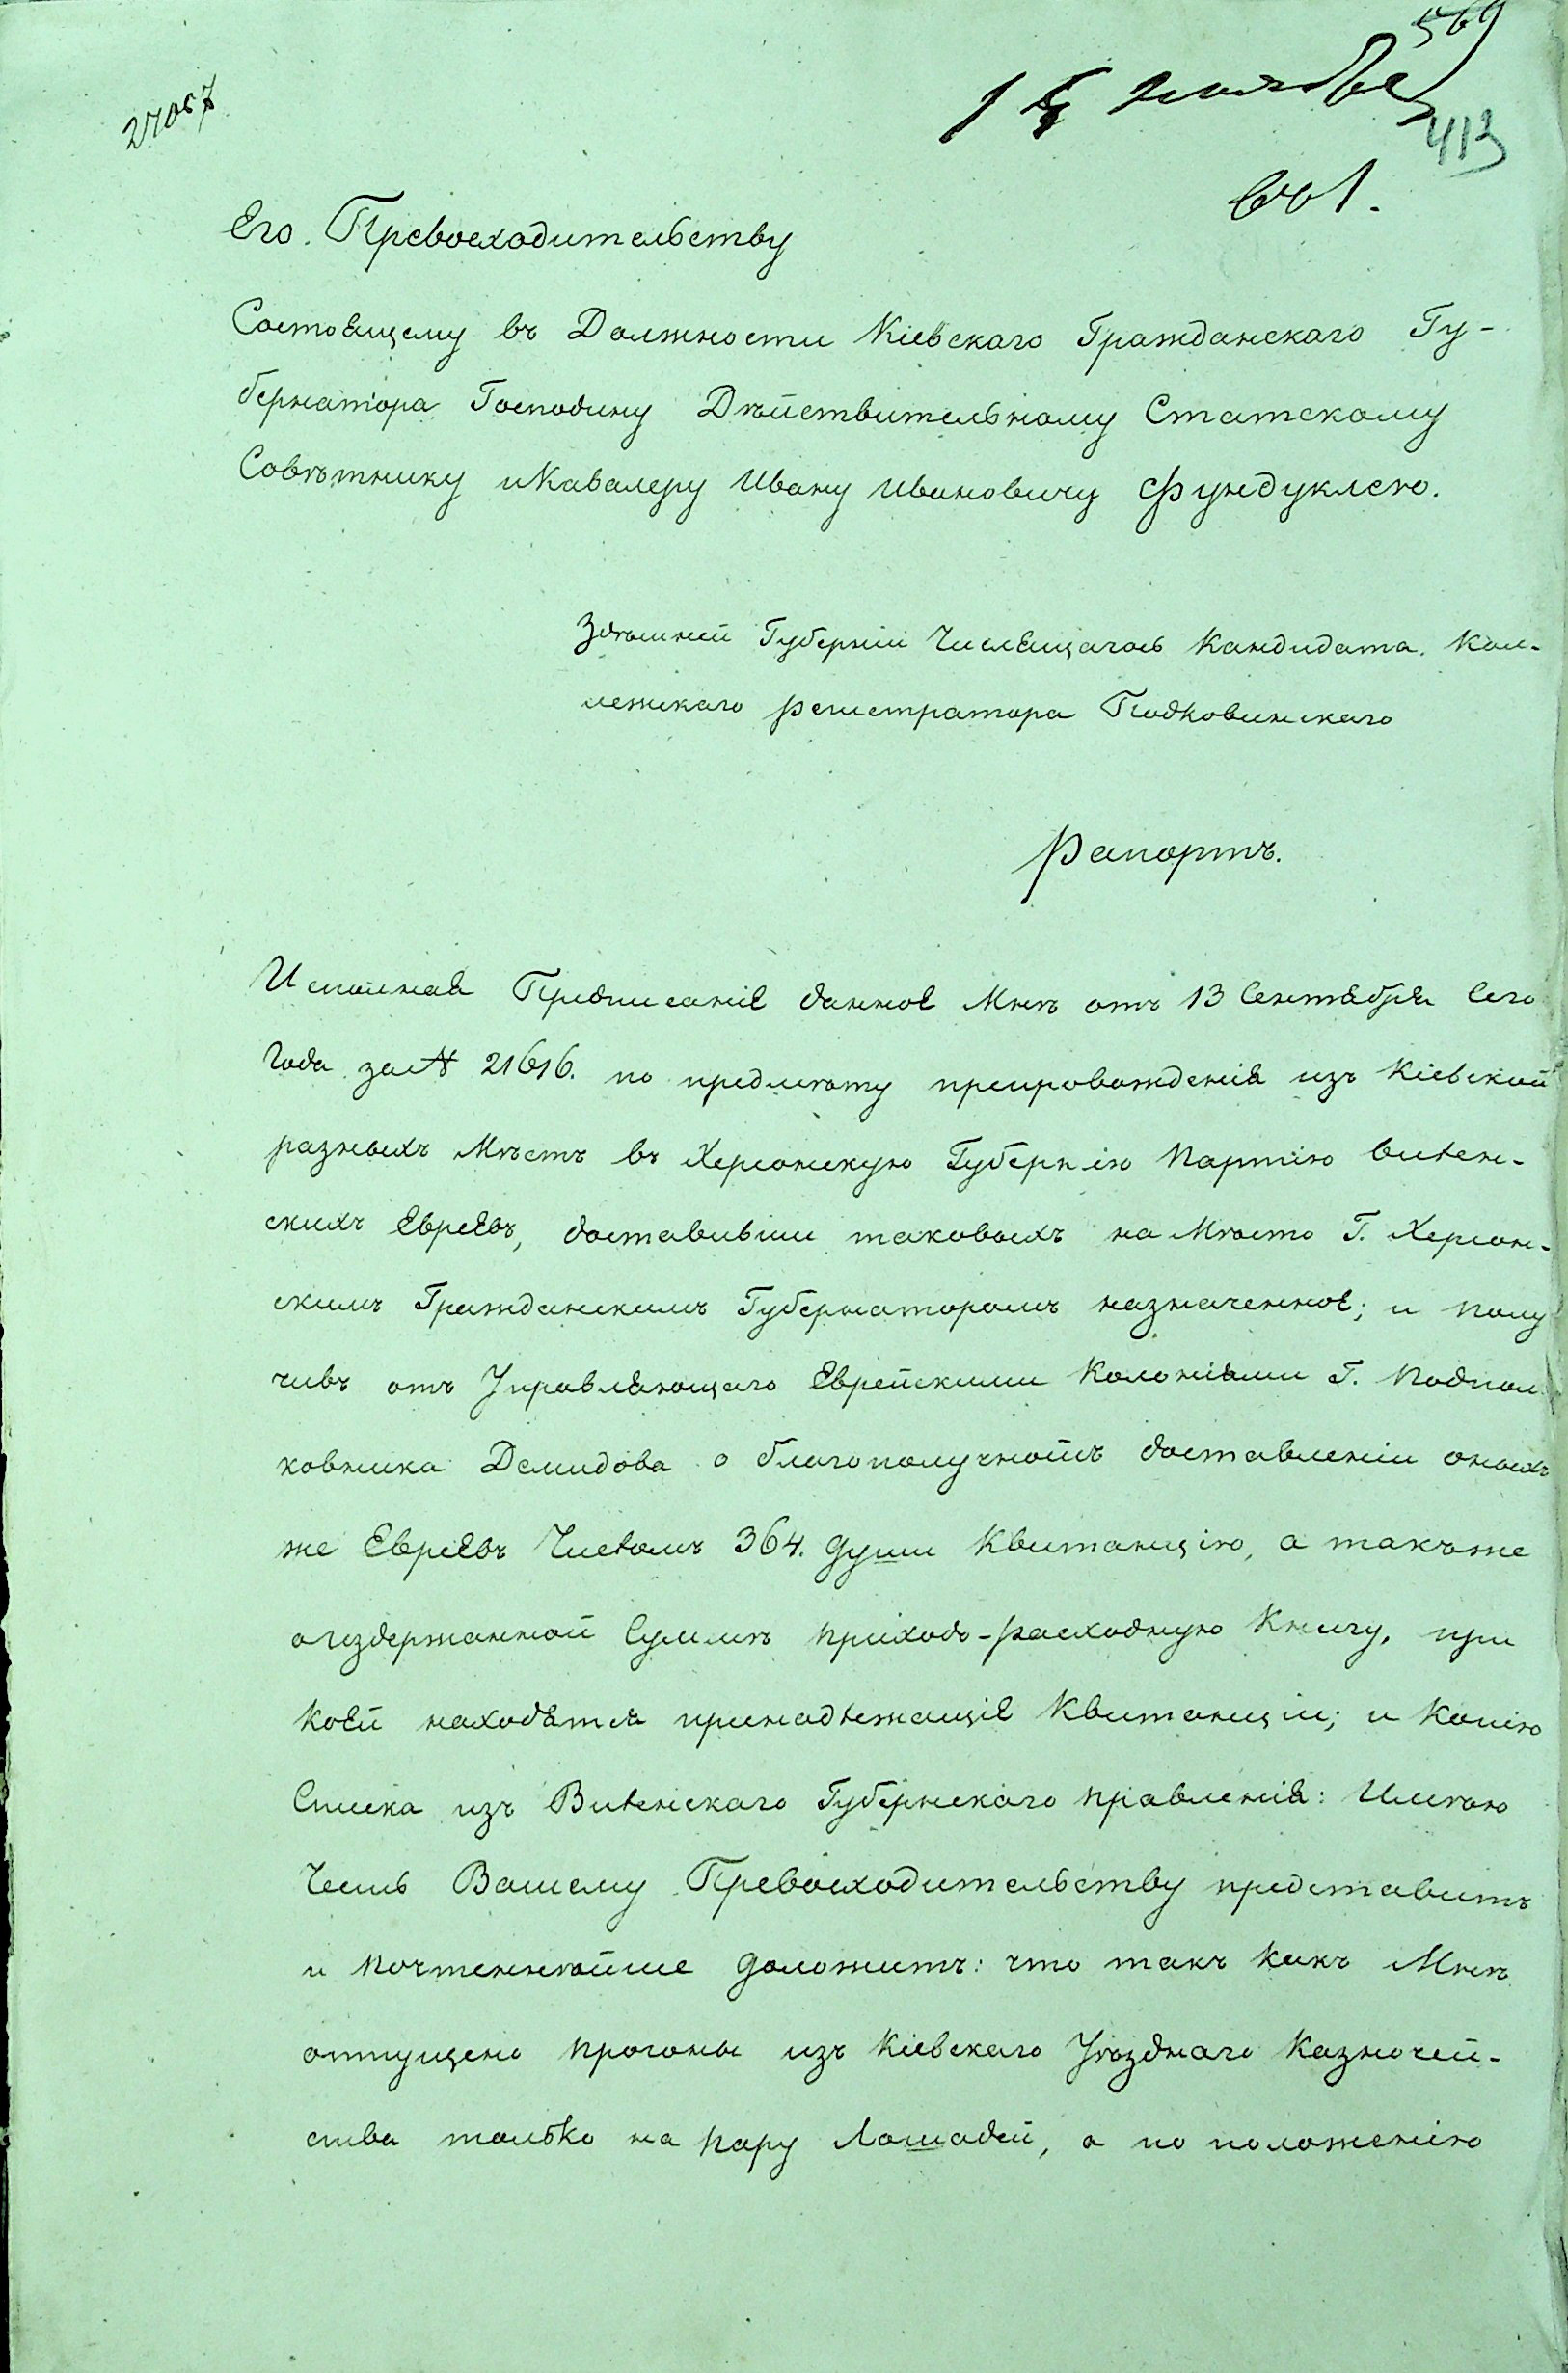 569
27057
15 ноября
413
Его Превосходительству
Состоящему въ Должности Кіевскаго Гражданскаго Гу-
бернатора Господину Дѣйствительному Статскому
Совѣтнику и Кавалеру Ивану Ивановичу Фундуклею.
Здѣшней Губерніи Числящагось Кандидата. Кол-
лежскаго регистратора Подковинскаго
Рапортъ.
Исполняя Предписаніе данное Мнѣ отъ 13 Сентября Сего
Года за № 21616. по предмѣту препровожденія изъ Кіевской
разныхъ Мѣстъ въ Херсонскую Губернію Партію Вилен-
скихъ Евреевъ, доставивши таковыхъ на Мѣсто Г. Херсон-
скимъ Гражданскимъ Губернаторомъ назначенное; и Полу
чивъ отъ Управляющаго Еврейскими Колоніями Г. Подпол
ковника Демидова о благополучномъ доставленіи оныхъ
же Евреевъ Числомъ 364. души Квитанцію, а такъже
о издержанной Суммѣ приходо-расходную Книгу, при
коей находятся принадлежащіе Квитанціи; и Копію
Списка изъ Виленскаго Губернскаго правленія: Имѣю
Честь Вашему Превосходительству представить
и Почтеннѣйше доложить: что такъ какъ Мнѣ
отпущено прогоны изъ Кіевскаго Уѣзднаго Казначей-
ства только на пару Лошадей, а по положенію